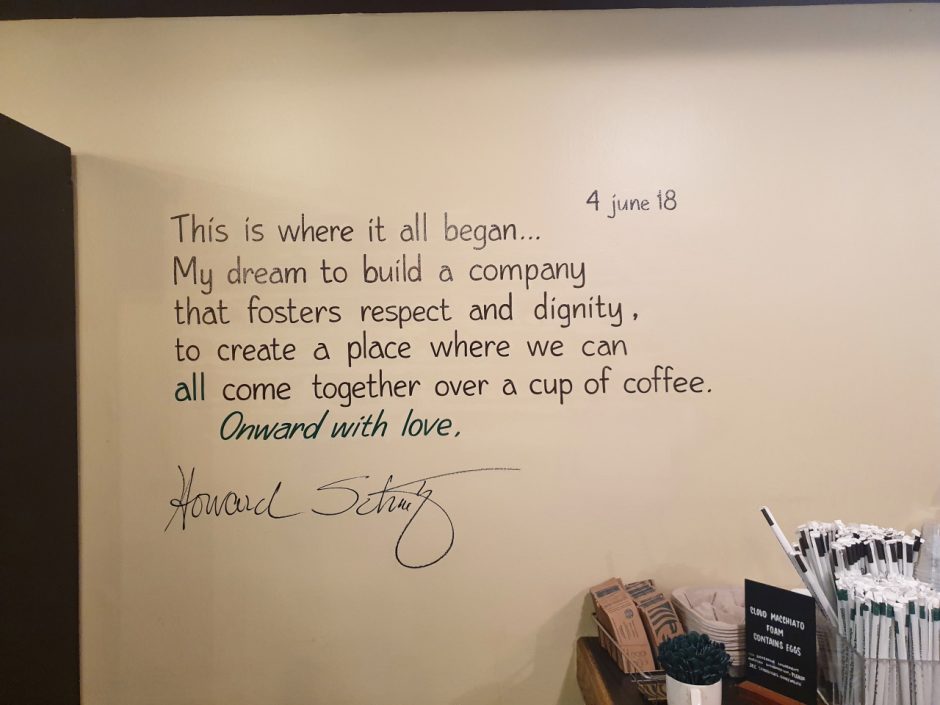 4 june 18
This is where it all began...
My dream to build a company
that fosters respect and dignity,
to create a place where we can
all come together over a cup of coffee.
Onward with love,
Howard Schultz
CLOUD MACCHIATO
FOAM
CONTAINS EGGS